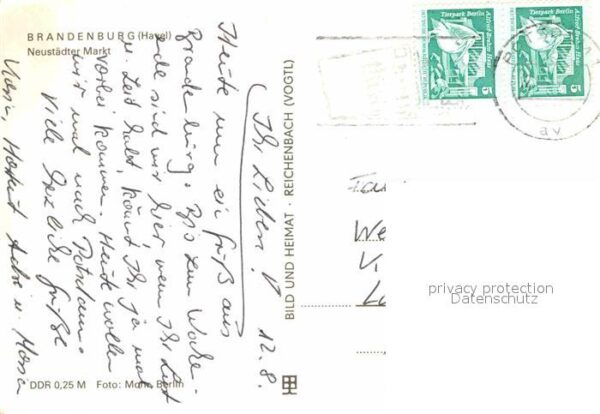 BRANDENBURG (Havel)
Neustädter Markt
Ihr Lieben! 12.8.
Heute nun ein Gruß aus
Brandenburg. Bis zum Wochen-
ende sind wir hier wenn Ihr Lust
u. Zeit habt, könnt Ihr ja mal
vorbei kommen. Heute wollen
wir mal nach Potsdam.
Viele herzliche Grüße
DDR 0,25 M Foto: Mohr, Berlin
BILD UND HEIMAT · REICHENBACH (VOGTL)
Tierpark Berlin
5
Tierpark Berlin
5
av
privacy protection
Datenschutz